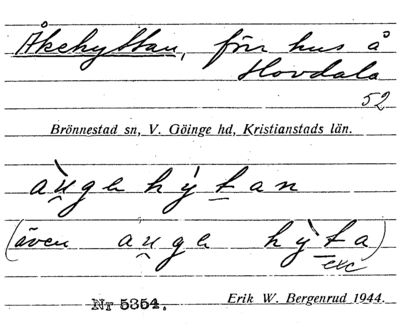 Åkehyttan, förr hus å
Hovdala
52
Brönnestad sn, V. Göinge hd, Kristianstads län.
àu̯gehỳtan
(även au̯ge hỳta)
exc
Nr 5354. Erik W. Bergenrud 1944.